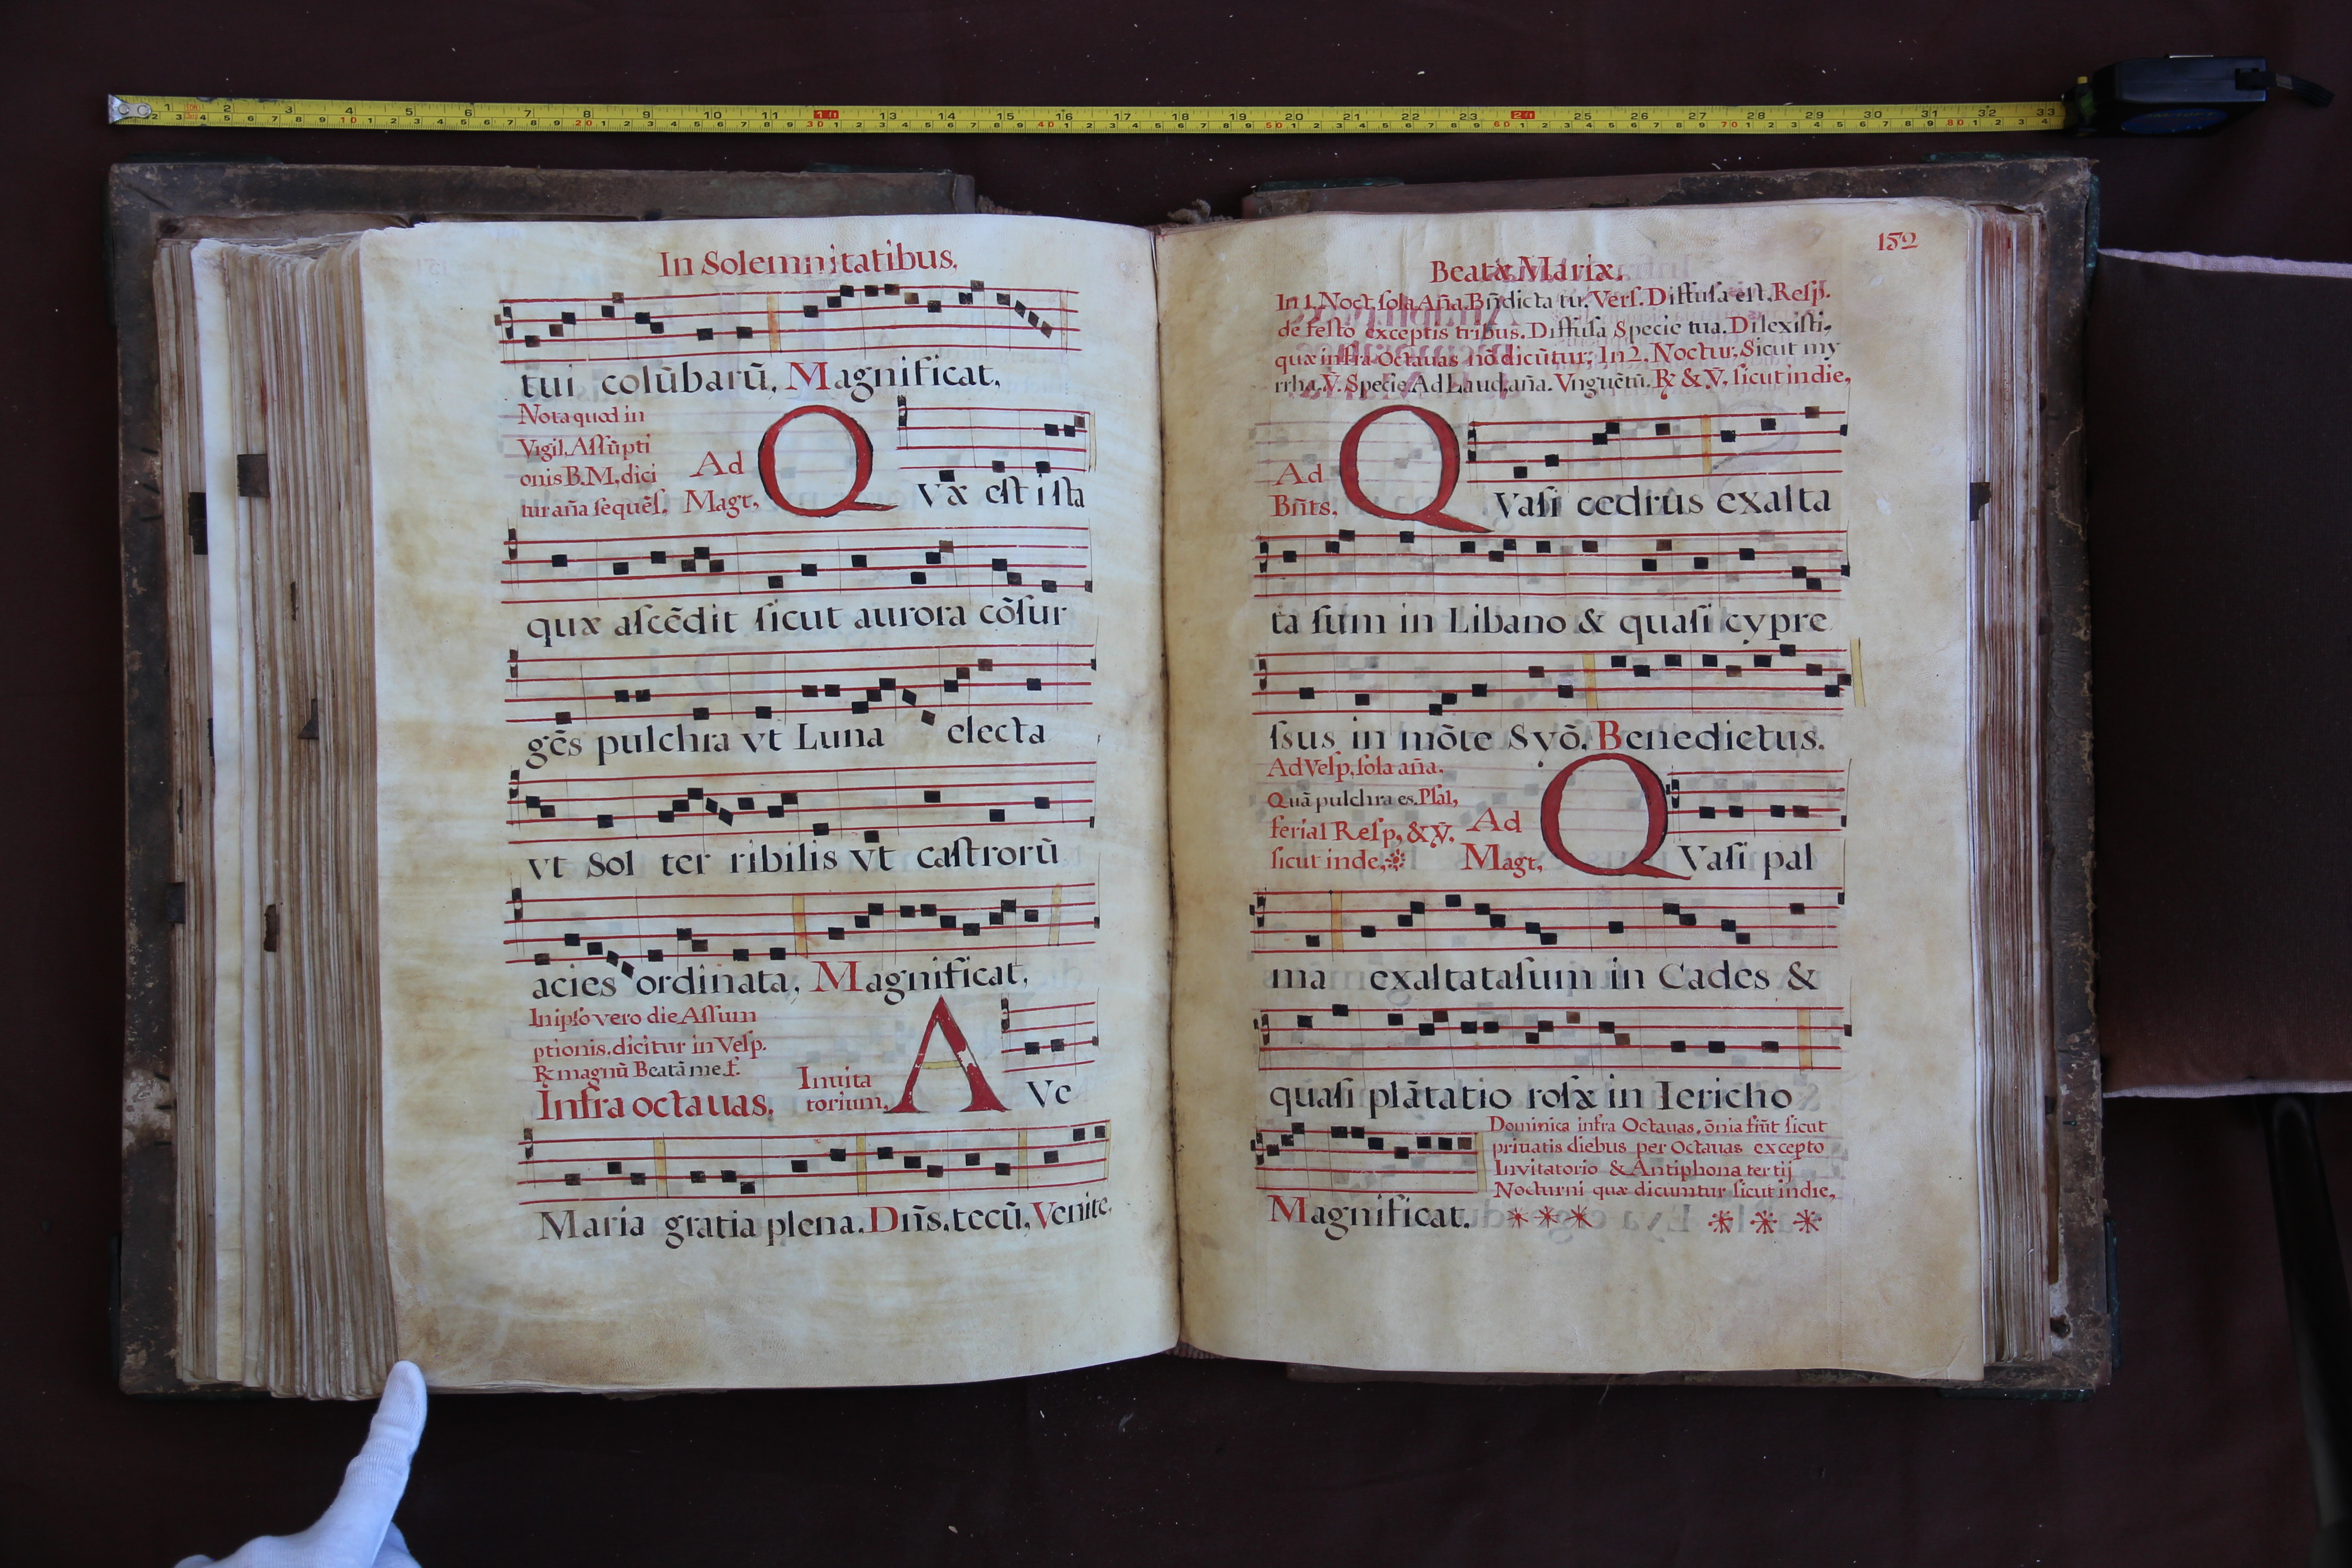 In Solemnitatibus.
tui colũbarũ. Magnificat.
Nota quod in
Vigil. Aſſũpti
onis B.M. dici
tur aña ſequẽſ.
Ad
Magt.
Q
Væ eſt iſta
quæ aſcẽdit ſicut aurora cõſur
gẽs pulchra vt Luna electa
vt Sol ter ribilis vt caſtrorũ
acies ordinata. Magnificat.
In ipſo vero die Aſſum
ptionis. dicitur in Veſp.
℟ magnũ Beatã me f.
Infra octauas.
Inuita
torium.
A
Ve
Maria gratia plena. Dñs. tecũ. Venite.
152
Beatæ Mariæ.
In 1. Noct. ſola Aña. Bñdicta tu. Verſ. Diffuſa eſt. Reſp.
de feſto exceptis tribus. Diffuſa Specie tua. Dilexiſti.
quæ infra Octauas nõ dicũtur. In 2. Noctur. Sicut my
rrha. ℣. Specie Ad Laud. aña. Vnguẽtũ. ℟ & ℣. ſicut in die.
Ad
Bñts.
Q
Vaſi cedrus exalta
ta ſum in Libano & quaſi cypre
ſsus in mõte Syõ. Benedictus.
Ad Veſp. ſola aña.
Quã pulchra es. Pſal.
ferial Reſp. & ℣.
ſicut inde.
Ad
Magt.
Q
Vaſi pal
ma exaltata ſum in Cades &
quaſi plãtatio roſæ in Iericho
Magnificat.
Dominica infra Octauas. õnia fiũt ſicut
priuatis diebus per Octauas excepto
Invitatorio & Antiphona tertij
Nocturni quæ dicuntur ſicut in die.